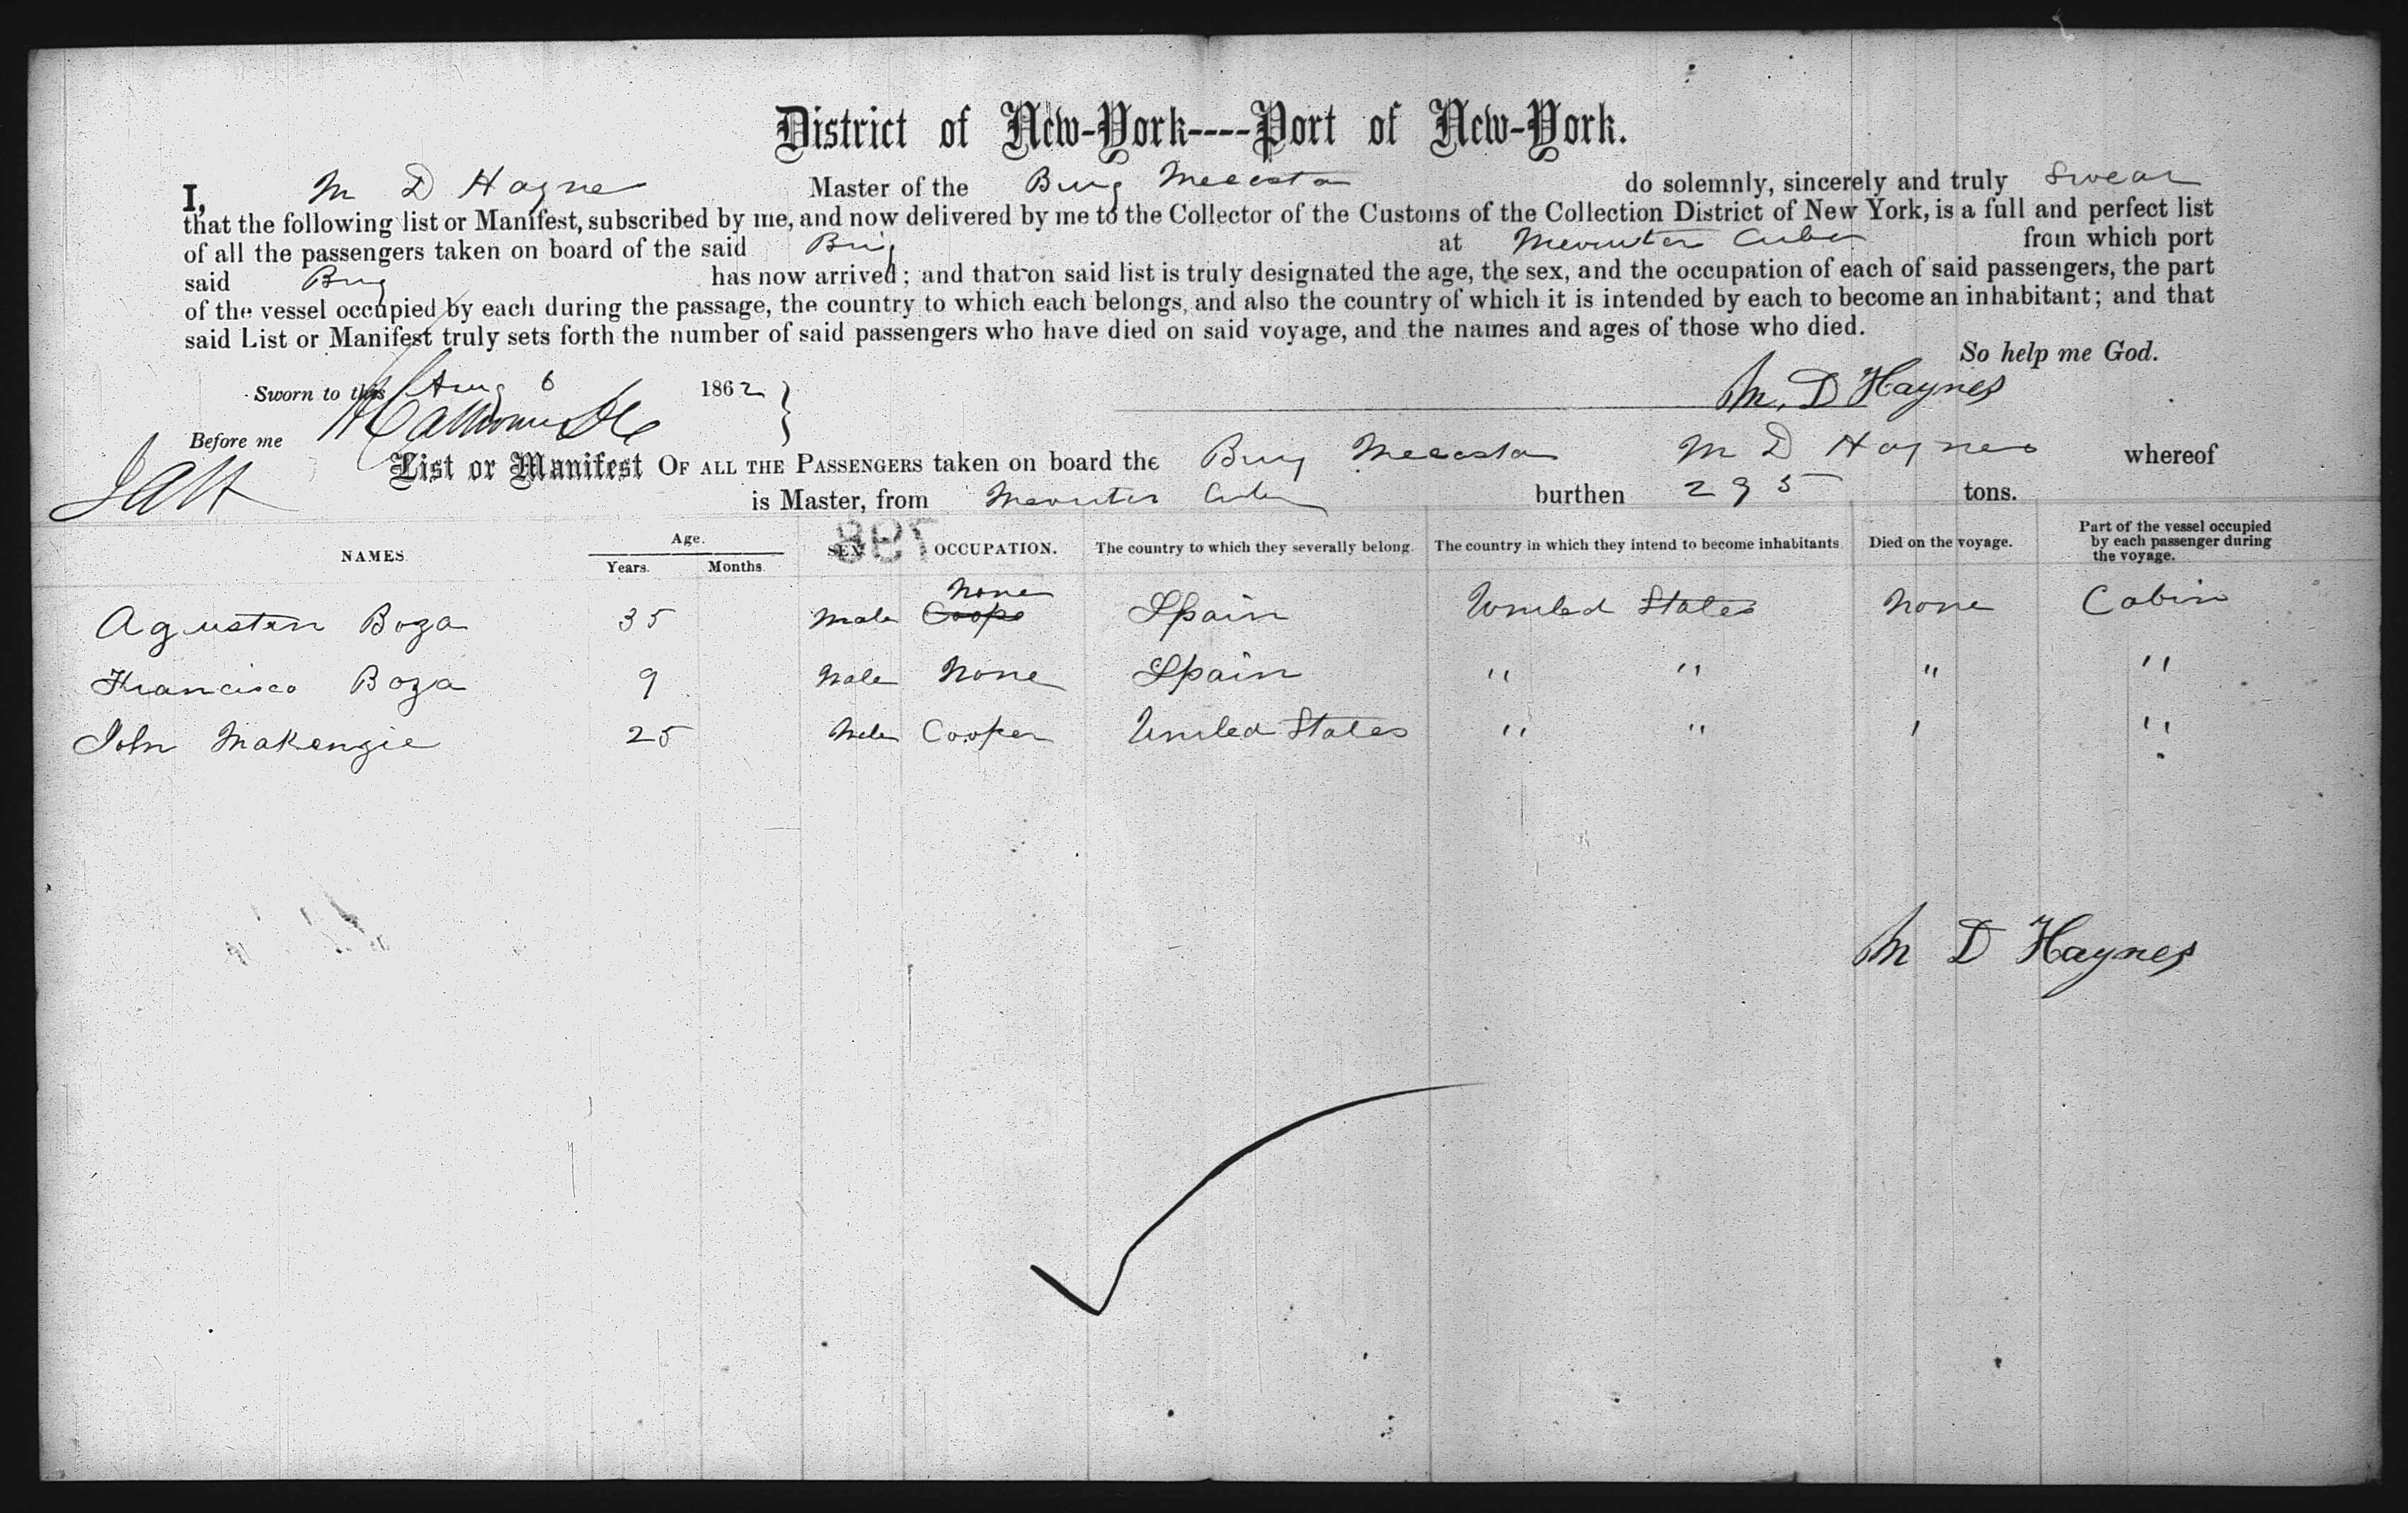 District of New-York----Port of New-York.
I, M D Hayne Master of the Brig do solemnly, sincerely and truly swear
that the following list or Manifest, subscribed by me, and now delivered by me to the Collector of the Customs of the Collection District of New York, is a full and perfect list
of all the passengers taken on board of the said Brig at Cuba from which port
said Brig has now arrived; and that on said list is truly designated the age, the sex, and the occupation of each of said passengers, the part
of the vessel occupied by each during the passage, the country to which each belongs, and also the country of which it is intended by each to become an inhabitant; and that
said List or Manifest truly sets forth the number of said passengers who have died on said voyage, and the names and ages of those who died.
So help me God.
Sworn to this Aug 6 1862
M. D Haynes
Before me
List or Manifest OF ALL THE PASSENGERS taken on board the Brig M D Haynes whereof
is Master, from Cuba burthen 295 tons.
NAMES. Age. Years. Months. SEX OCCUPATION. The country to which they severally belong. The country in which they intend to become inhabitants. Died on the voyage. Part of the vessel occupied by each passenger during the voyage.
798
Agusten Boza 35 Male Coope None Spain United States None Cabin
Francisco Boza 9 Male None Spain " " " "
John Makenzie 25 Male Cooper United States " " " "
M D Haynes